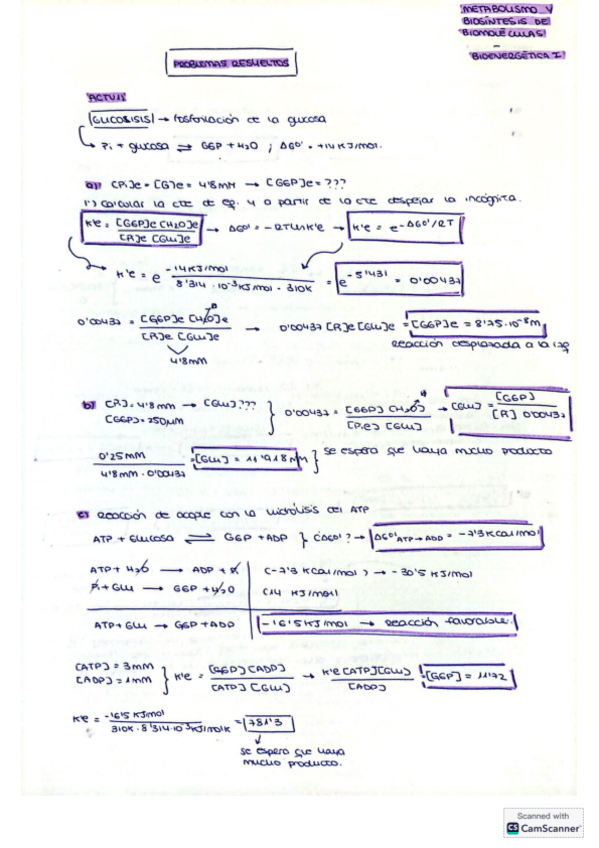 METABOLISMO Y
BIOSÍNTESIS DE
BIOMOLÉCULAS
BIOENERGÉTICA I
PROBLEMAS RESUELTOS
GLUCOSISIS → fosforilación de la glucosa
Pi + glucosa ⇌ G6P + H2O ; ΔG0' = +14 KJ/mol.
a) [Pi]e = [G]e = 4'8mM → [G6P]e = ???
1º) calcular la cte de eq. y a partir de la cte despejar la incógnita.
K'e = [G6P]e [H2O]e / [P]e [Glu]e → ΔG0' = -RTLnK'e → K'e = e^-ΔG0'/RT
K'e = e^ -14KJ/mol / 8'314·10^-3KJ/mol·310K = e^-5'431 = 0'00437
0'00437 = [G6P]e [H2O]e / [P]e [Glu]e → 0'00437 [P]e [Glu]e = [G6P]e = 8'75·10^-8M
4'8mM
Reacción desplazada a la izq
b) [P] = 4'8mM → [Glu]???
[G6P] = 250μM
0'00437 = [G6P] [H2O] / [Pe] [Glu] → [Glu] = [G6P] / [P] 0'00437
0'25mM / 4'8mM · 0'00437 = [Glu] = 11'918mM } se espera que haya mucho producto
c) Reacción de acople con la hidrólisis del ATP
ATP + Glucosa ⇌ G6P + ADP } ¿ΔG0'? → ΔG0' ATP→ADP = -7'3Kcal/mol
ATP + H2O → ADP + Pi (-7'3 Kcal/mol) → -30'5 KJ/mol
Pi + Glu → G6P + H2O (14 KJ/mol)
ATP + Glu → G6P + ADP -16'5KJ/mol → Reacción favorable.
[ATP] = 3mM
[ADP] = 1mM
K'e = [G6P] [ADP] / [ATP] [Glu] → K'e [ATP] [Glu] / [ADP] = [G6P] = 11'72
K'e = -16'5 KJ/mol / 310K · 8'314·10^-3KJ/molK = 781'3
se espera que haya
mucho producto.
Scanned with
CS CamScanner